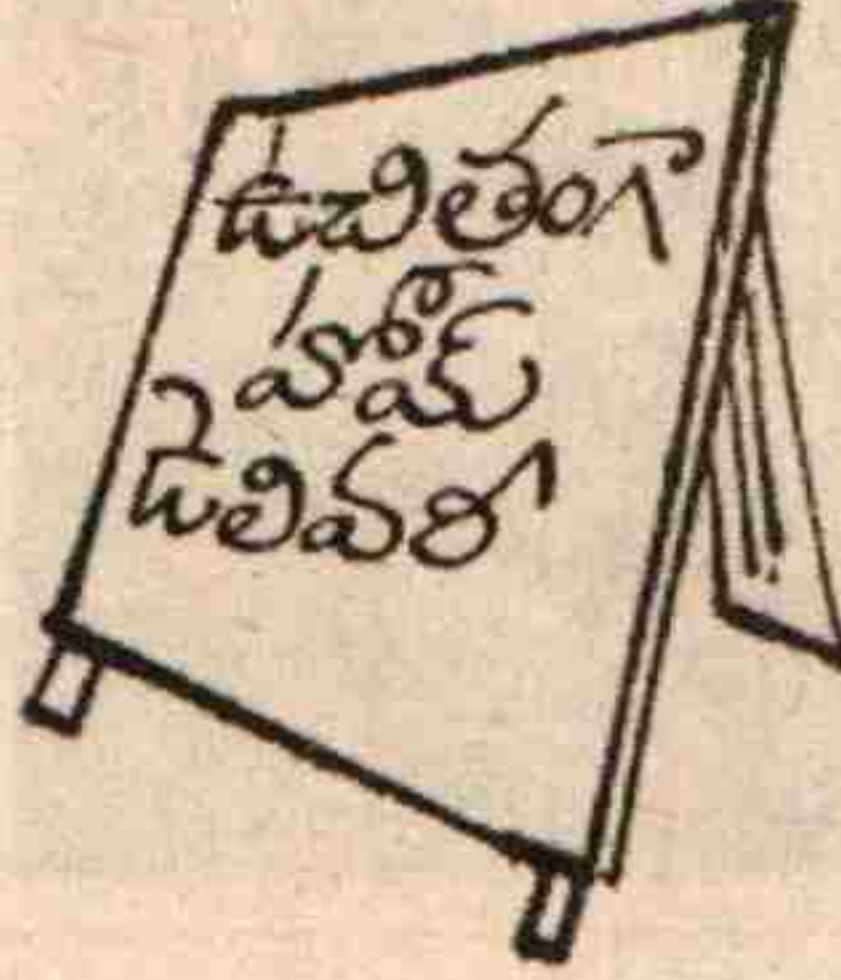 ఉచితంగా
హోమ్
డెలివరీ